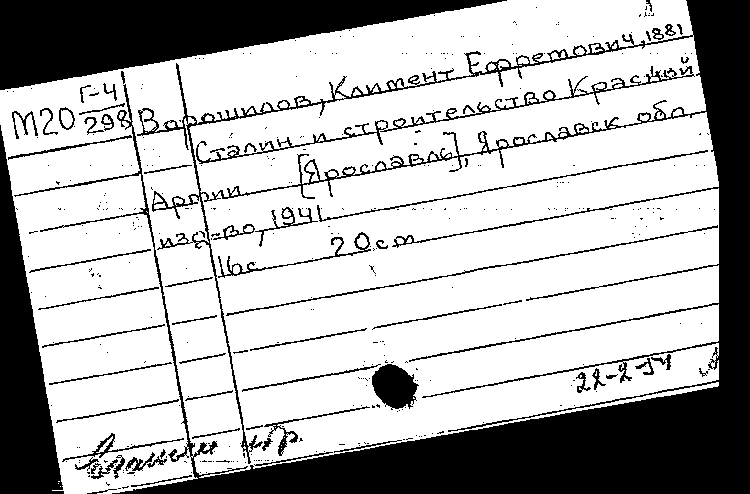 М20 Г-4/298 Ворошилов, Климент Ефремович, 1881
Сталин и строительство Красной
Армии [Ярославль], Ярославск обл.
изд-во, 1941
16с 20 см
22-2-54